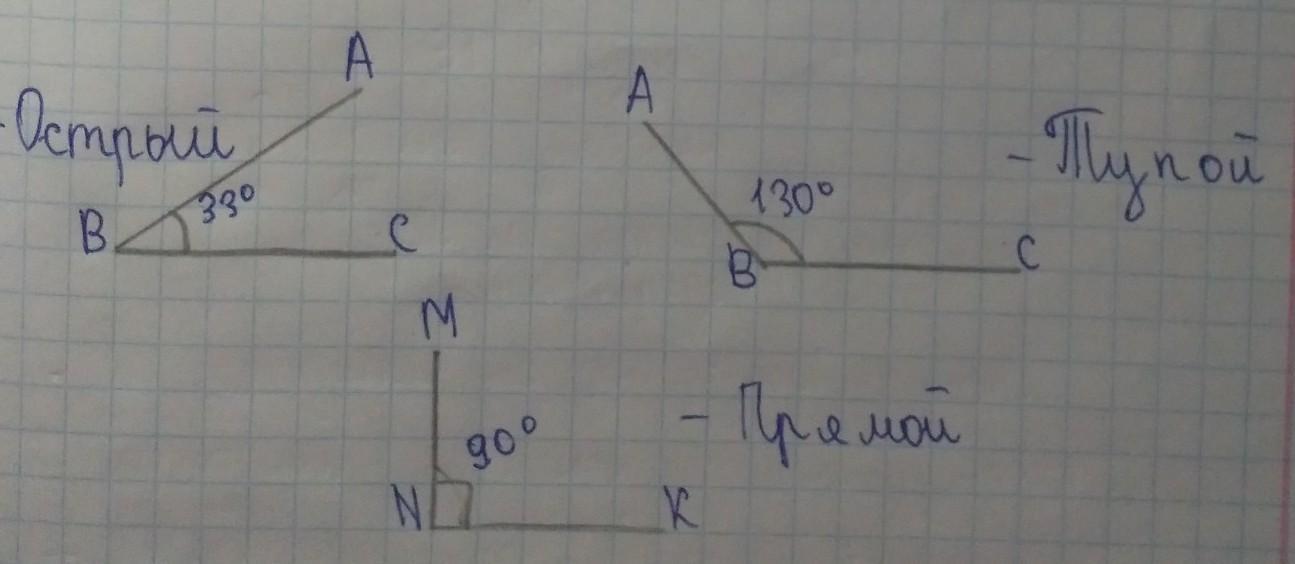 A
- Острый
33°
B
C
A
130°
- Тупой
B
C
M
90°
- Прямой
N
K